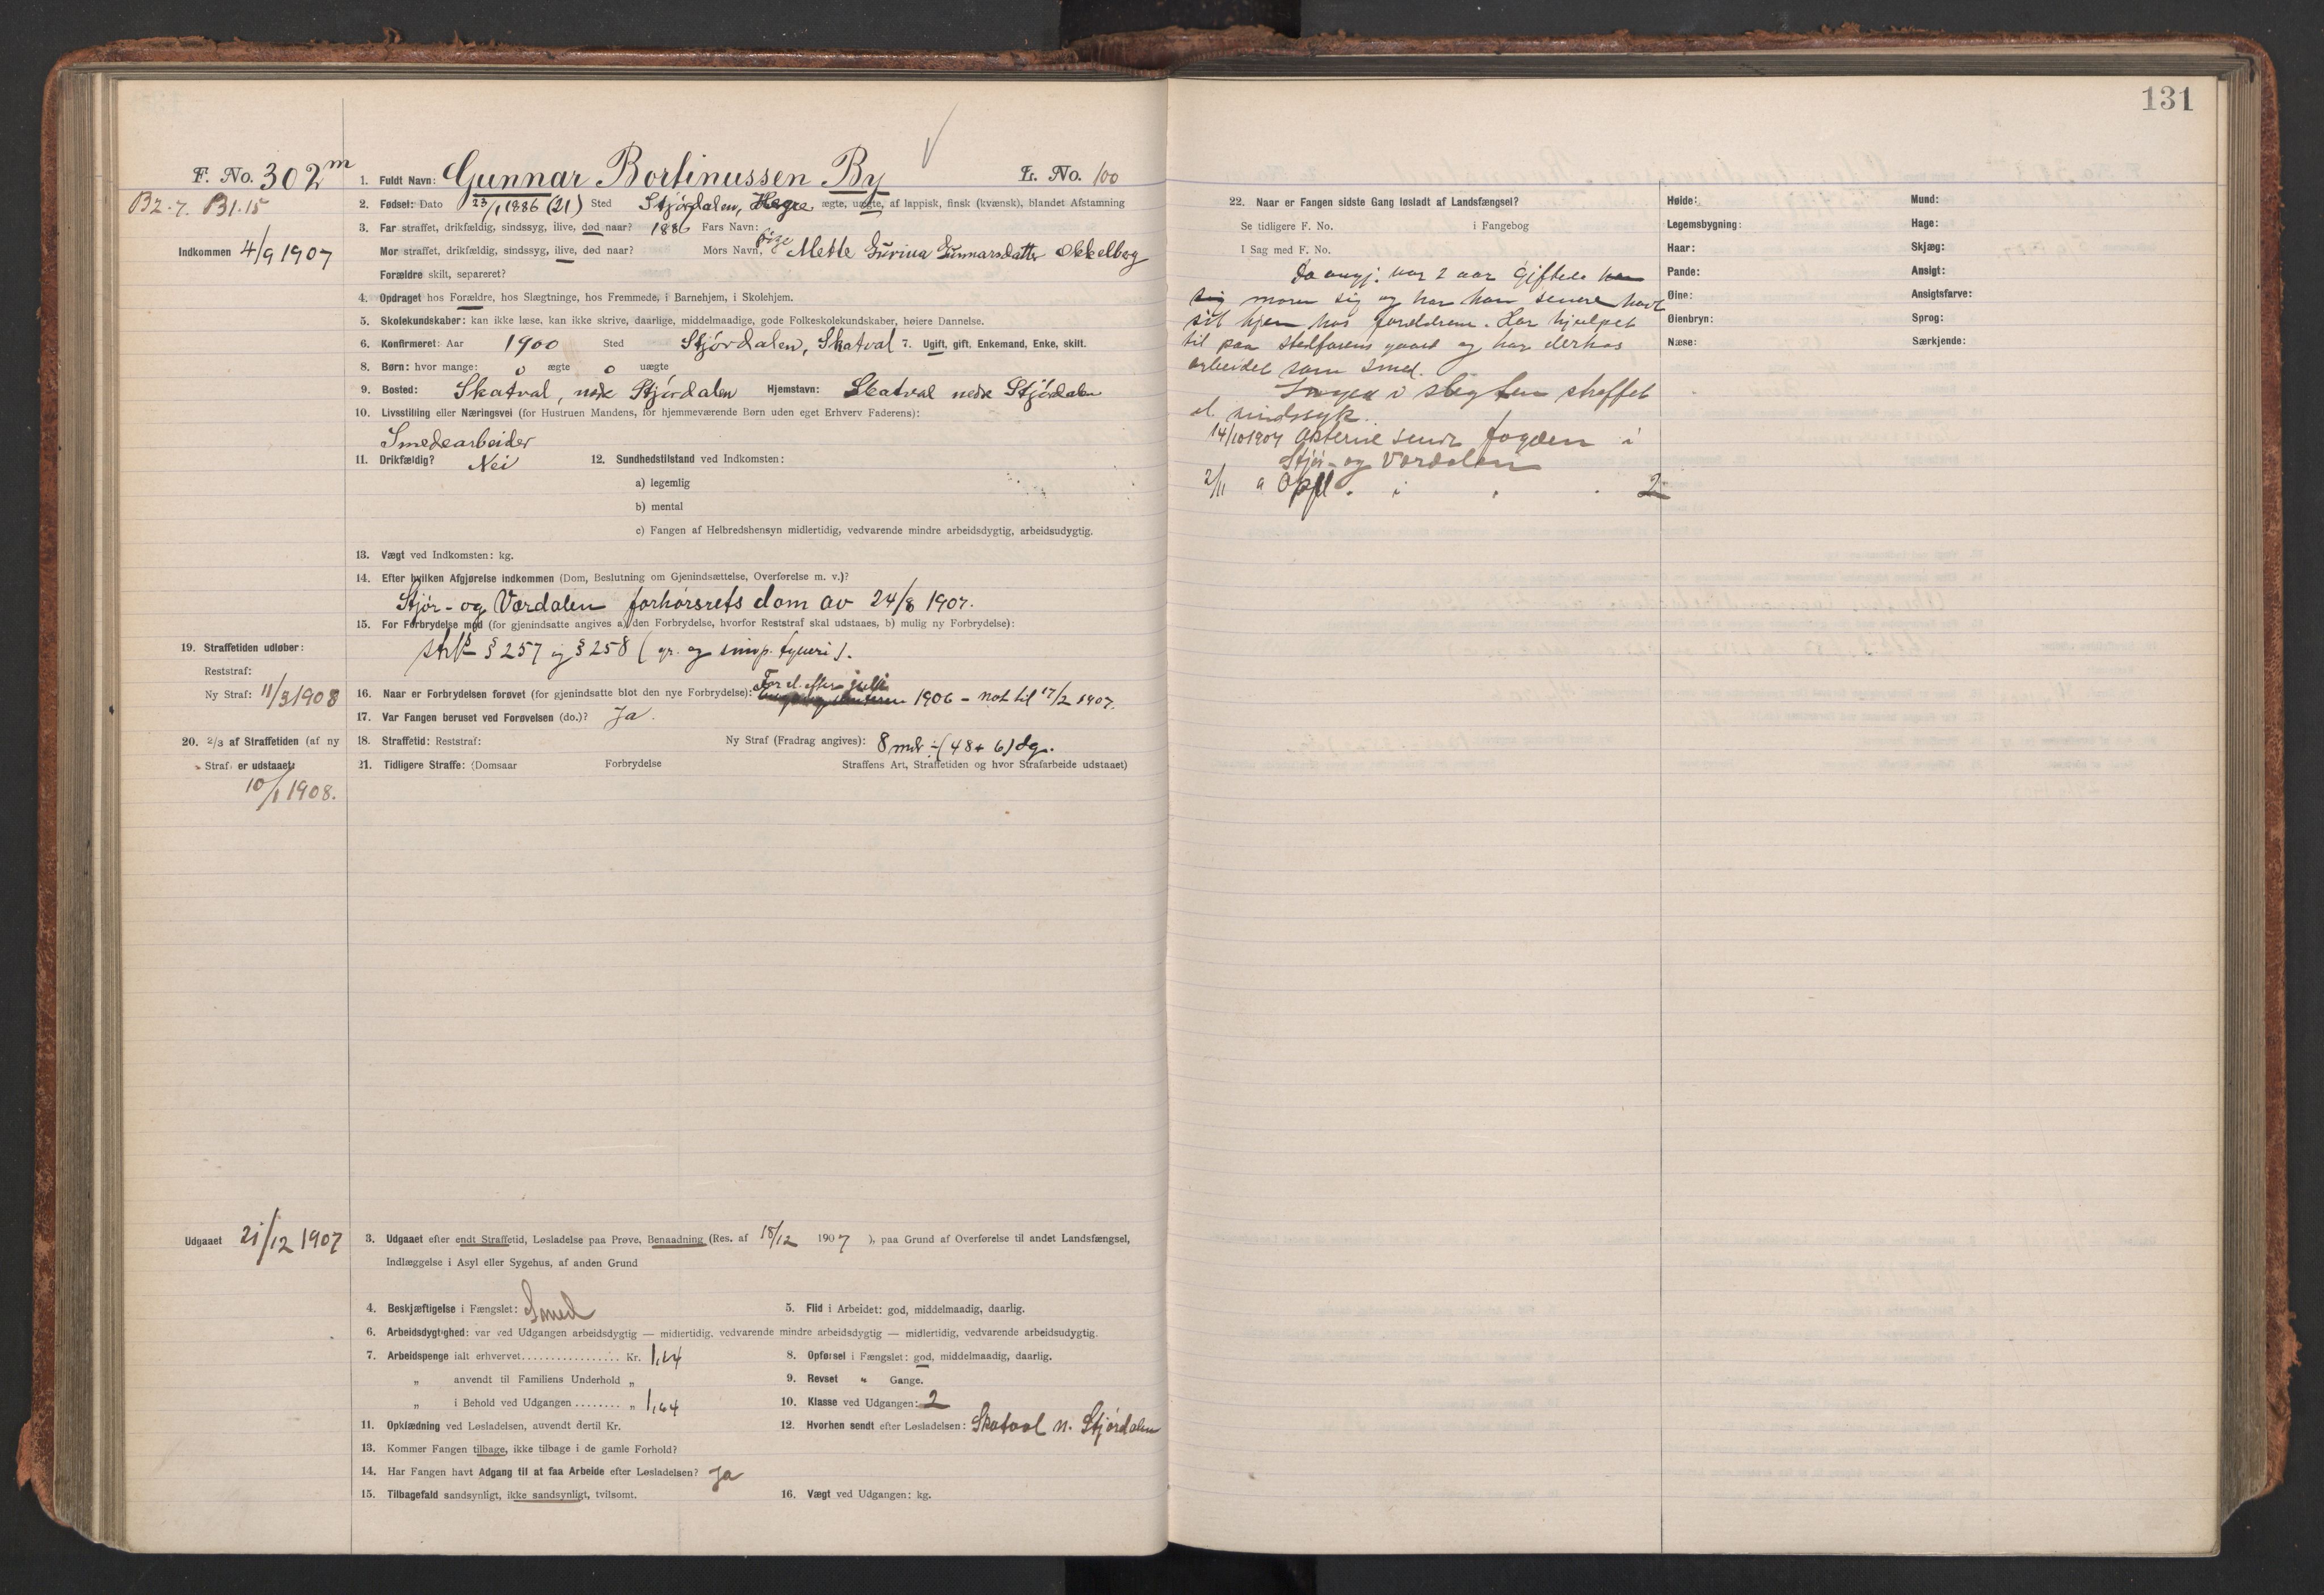 F. No. 302 m
1. Fuldt Navn: Gunnar Bortinussen By L. No. 100
B2.7. B1.15
2. Fødsel: Dato 23/1 1886 (21) Sted Stjórdalen, Hegre, ægte, uægte, af lappisk, finsk (kvænsk), blandet Afstamning
3. Far straffet, drikfældig, sindssyg, ilive, død naar? 1886 Fars Navn:
Indkommen 4/9 1907
Mor straffet, drikfældig, sindssyg, ilive, død naar? Mors Navn, pige Mette Gurina Gunnarsdatter Okkelberg
Forældre skilt, separeret?
4. Opdraget hos Forældre, hos Slægtninge, hos Fremmede, i Barnehjem, i Skolehjem.
5. Skolekundskaber: kan ikke læse, kan ikke skrive, daarlige, middelmaadige, gode Folkeskolekundskaber, høiere Dannelse.
6. Konfirmeret: Aar 1900 Sted Stjórdalen, Skatval 7. Ugift, gift, Enkemand, Enke, skilt.
8. Børn: hvor mange: 0 ægte 0 uægte
9. Bosted: Skatval, nedr Stjórdalen Hjemstavn: Skatval nedr Stjórdalen
10. Livsstilling eller Næringsvei (for Hustruen Mandens, for hjemmeværende Børn uden eget Erhverv Faderens):
Smedearbeider
11. Drikfældig? Nei 12. Sundhedstilstand ved Indkomsten:
a) legemlig
b) mental
c) Fangen af Helbredshensyn midlertidig, vedvarende mindre arbeidsdygtig, arbeidsudygtig.
13. Vægt ved Indkomsten: kg.
14. Efter hvilken Afgjørelse indkommen (Dom, Beslutning om Gjenindsættelse, Overførelse m. v.)?
Stjór- og Værdalen forhórsrets dom av 24/8 1907.
15. For Forbrydelse mod (for gjenindsatte angives a) den Forbrydelse, hvorfor Reststraf skal udstaaes, b) mulig ny Forbrydelse):
strl. § 257 og § 258 (gr. og simp. tyveri).
19. Straffetiden udløber:
Reststraf:
Ny Straf: 11/3 1908
16. Naar er Forbrydelsen forøvet (for gjenindsatte blot den nye Forbrydelse): For el. efter juli 1906 - nat til 17/2 1907.
17. Var Fangen beruset ved Forøvelsen (do.)? Ja.
20. 2/3 af Straffetiden (af ny Straf) er udstaaet:
10/1 1908.
18. Straffetid: Reststraf: Ny Straf (Fradrag angives): 8 mdr ÷ (48 + 6) dg.
21. Tidligere Straffe: (Domsaar Forbrydelse Straffens Art, Straffetiden og hvor Strafarbeide udstaaet)
Udgaaet 21/12 1907
3. Udgaaet efter endt Straffetid, Løsladelse paa Prøve, Benaadning (Res. af 18/12 1907), paa Grund af Overførelse til andet Landsfængsel,
Indlæggelse i Asyl eller Sygehus, af anden Grund
4. Beskjæftigelse i Fængslet: Smed 5. Flid i Arbeidet: god, middelmaadig, daarlig.
6. Arbeidsdygtighed: var ved Udgangen arbeidsdygtig — midlertidig, vedvarende mindre arbeidsdygtig — midlertidig, vedvarende arbeidsudygtig.
7. Arbeidspenge ialt erhvervet................. Kr. 1,64 8. Opførsel i Fængslet: god, middelmaadig, daarlig.
„ anvendt til Familiens Underhold „ 9. Revset „ Gange.
„ i Behold ved Udgangen ........ „ 1,64 10. Klasse ved Udgangen: 2
11. Opklædning ved Løsladelsen, anvendt dertil Kr. 12. Hvorhen sendt efter Løsladelsen: Skatval n. Stjórdalen
13. Kommer Fangen tilbage, ikke tilbage i de gamle Forhold?
14. Har Fangen havt Adgang til at faa Arbeide efter Løsladelsen? Ja
15. Tilbagefald sandsynligt, ikke sandsynligt, tvilsomt. 16. Vægt ved Udgangen: kg.
131
22. Naar er Fangen sidste Gang løsladt af Landsfængsel?
Se tidligere F. No. i Fangebog
I Sag med F. No.
Da angj. var 2 aar giftede han
sig moren sig og har han senere havt
sit hjem hos forældrene. Har hjulpet
til paa stedfarens gaard og har derhos
arbeidet som smed.
Ingen i slegten straffet
el. sindssyk.
14/10 1907 Akterne sendt fogden i
Stjór- og Værdalen
2/11 " Opfl. i . . 2
Høide:
Legemsbygning:
Haar:
Pande:
Øine:
Øienbryn:
Næse:
Mund:
Hage:
Skjæg:
Ansigt:
Ansigtsfarve:
Sprog:
Særkjende: